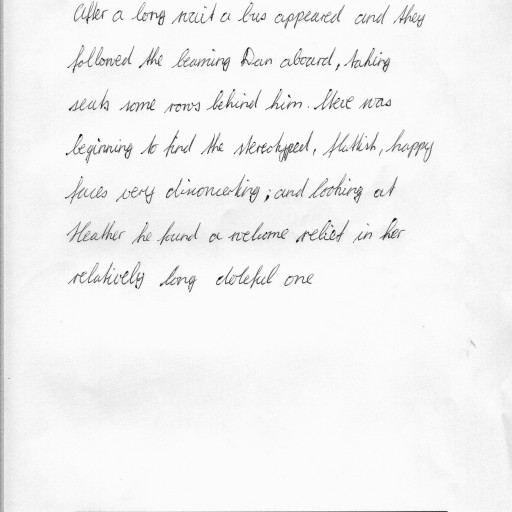 After a long wait a bus appeared and they
followed the beaming Dan aboard, taking
seats some rows behind him. Steve was
beginning to find the stereotyped, fluttish, happy
faces very disconcerting; and looking at
Heather he found a welcome relief in her
relatively long doleful one